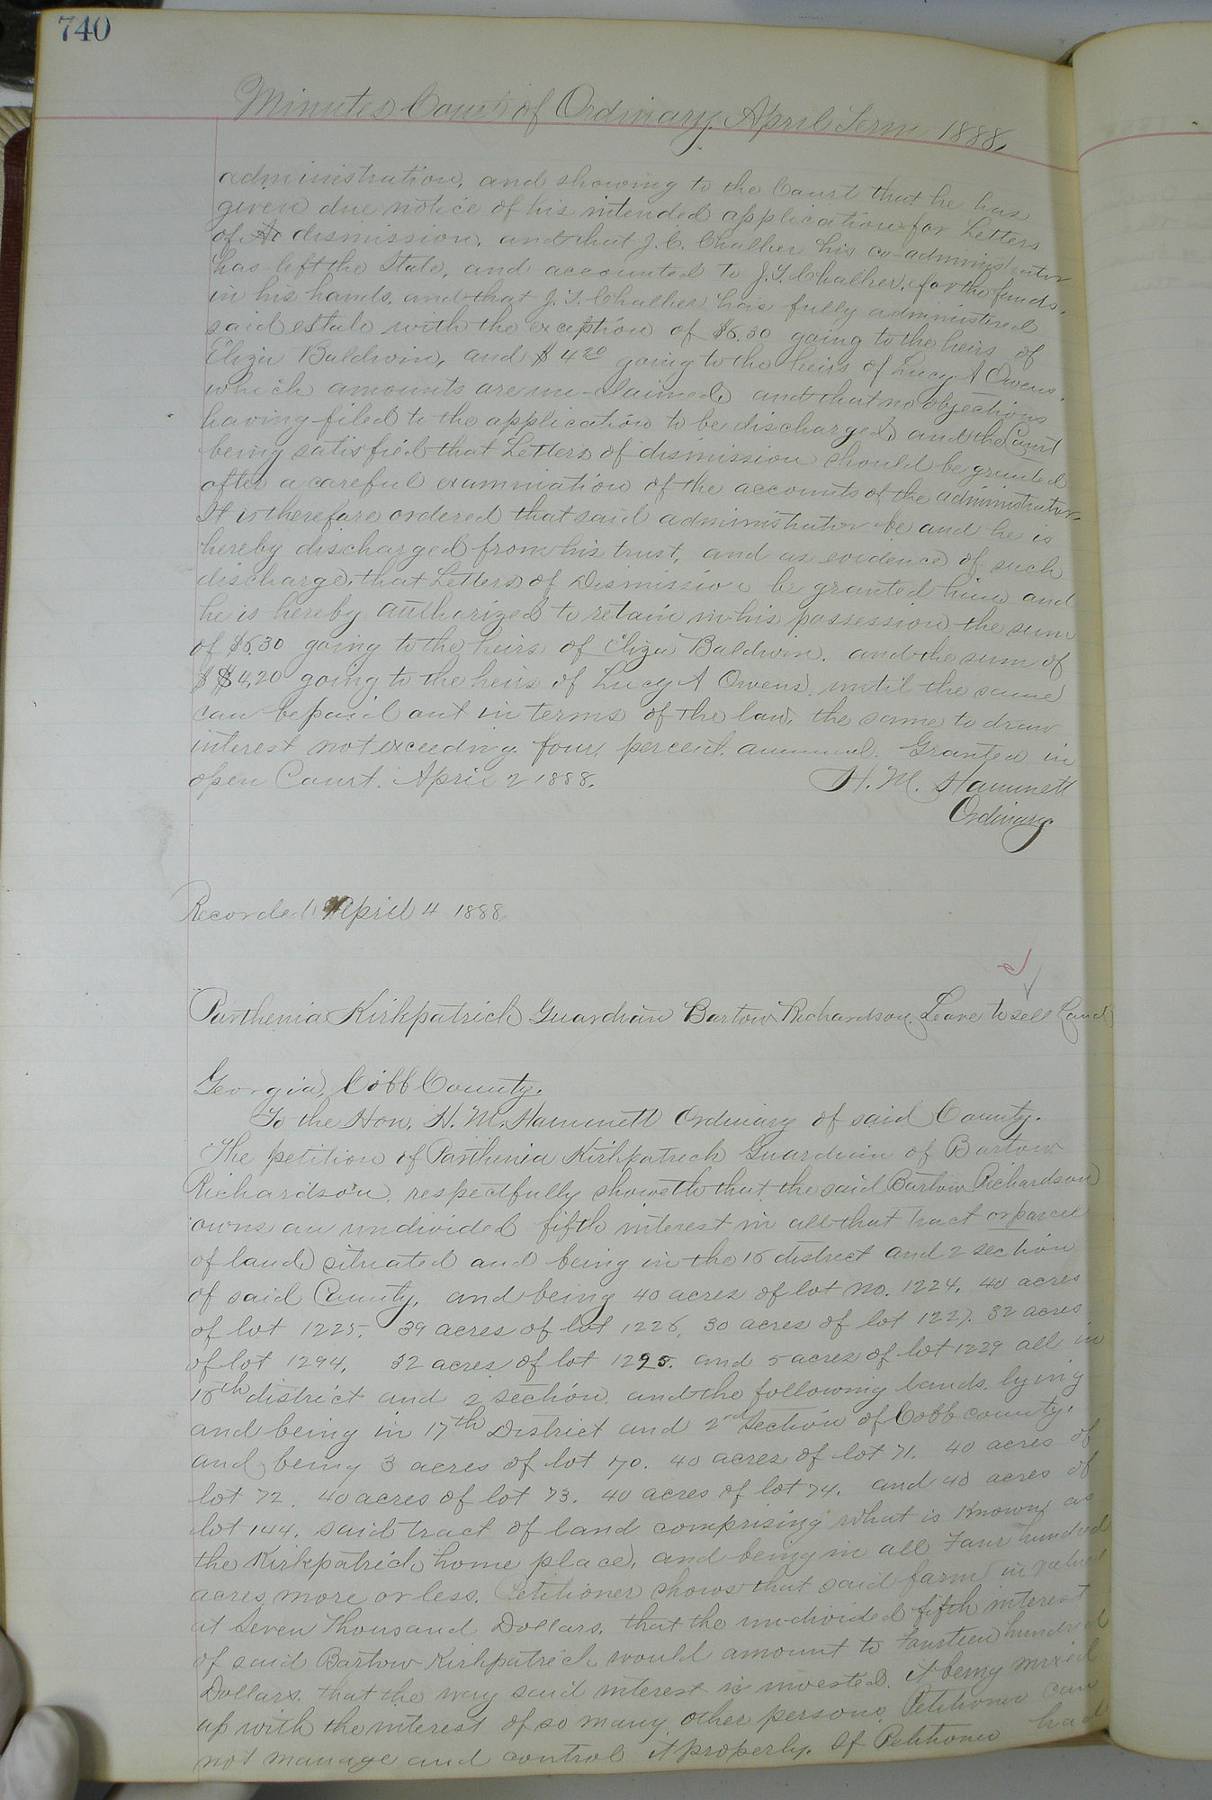 740
Minutes Court of Ordinary, April Term 1888.
administration, and showing to the Court that he has
given due notice of his intended application for Letters
of dismission, and that J. C. Chalker his co-administrator
has left the State, and accounted to J. T. Chalker, for the funds
in his hands, and that J. T. Chalker has fully administered
said estate with the exception of $6.30 going to the heirs of
Eliza Baldwin, and $4 20 going to the heirs of Lucy A Owens,
which amounts are un-claimed, and that no objections
having filed to the application to be discharged, and the Court
being satisfied that Letters of dismission should be granted
after a careful examination of the accounts of the administrator.
It is therefore ordered that said administrator be and he is
hereby discharged from his trust, and as evidence of such
discharge, that Letters of Dismission be granted him and
he is hereby authorized to retain in his possession the sum
of $6.30 going to the heirs of Eliza Baldwin. and the sum of
$ $4.20 going to the heirs of Lucy A Owens, until the same
can be paid out in terms of the law, the same to draw
interest not exceeding four percent. annual. Granted in
open Court. April 2 1888.
H. M. Hammett
Ordinary
Recorded April 4 1888
Parthenia Kirkpatrick Guardian Bartow Richardson, Leave to sell Land
Georgia, Cobb County.
To the Hon. H. M. Hammett Ordinary of said County.
The petition of Parthenia Kirkpatrick Guardian of Bartow
Richardson, respectfully showeth that the said Bartow Richardson
owns an undivided fifth interest in all that tract or parcel
of land situated and being in the 16 district and 2 section
of said County, and being 40 acres of lot no. 1224, 40 acres
of lot 1225. 39 acres of lot 1226, 30 acres of lot 1227. 32 acres
of lot 1294, 32 acres of lot 1295. and 5 acres of lot 1229 all in
16th district and 2 section, and the following lands lying
and being in 17th District and 2nd Section of Cobb County.
and being 3 acres of lot 70. 40 acres of lot 71. 40 acres of
lot 72. 40 acres of lot 73. 40 acres of lot 74. and 40 acres of
lot 144. said tract of land comprising what is known as
the Kirkpatrick home place, and being in all Four hundred
acres, more or less. Petitioner shows that said farm is valued
at Seven Thousand Dollars. that the undivided fifth interest
of said Bartow Kirkpatrick would amount to Fourteen hundred
Dollars. that the way said interest is invested, it being mixed
up with the interest of so many other persons, Petitioner can
not manage and control it properly. If Petitioner had